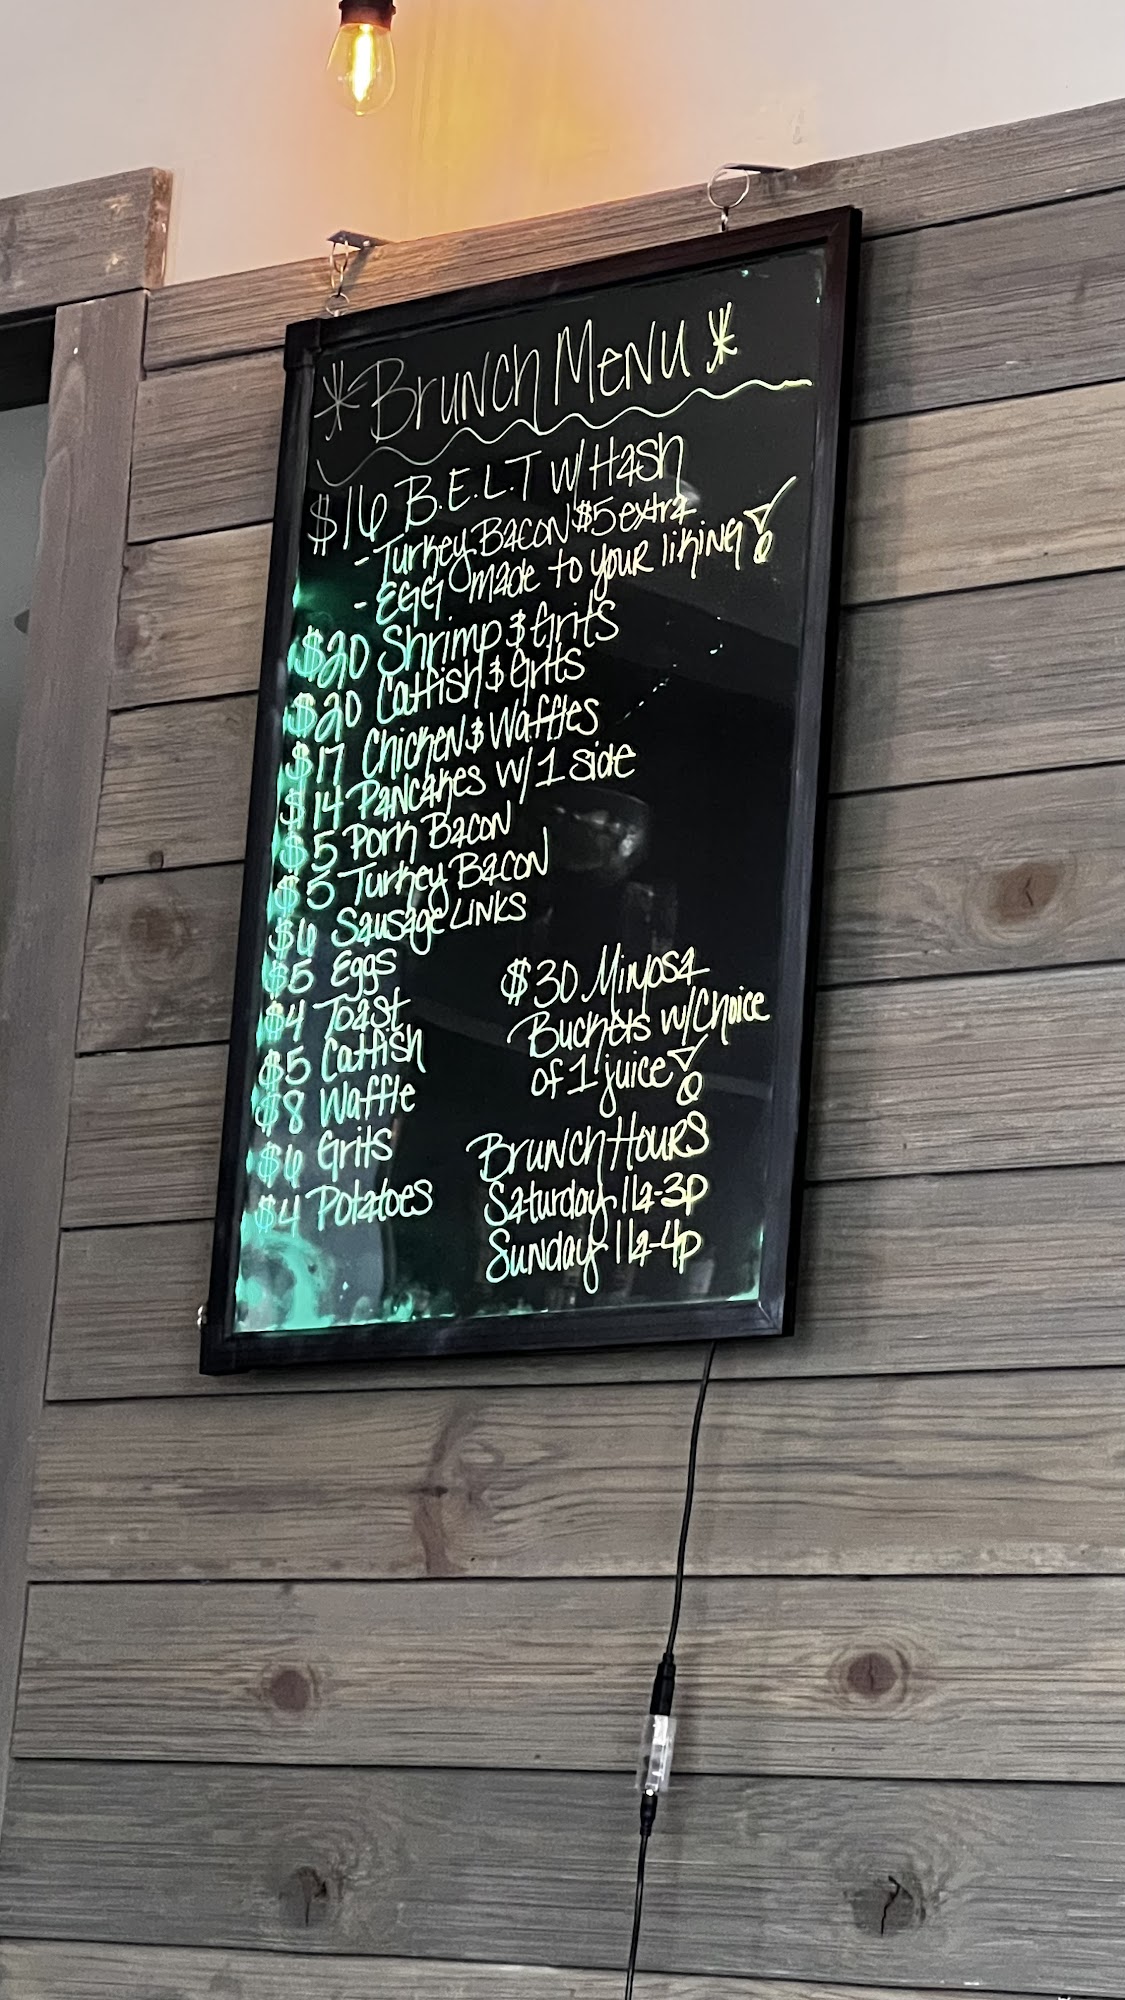 *Brunch Menu*
$16 B.E.L.T w/ Hash
- Turkey Bacon $5 extra
- EGG made to your liking!
$20 Shrimp & Grits
$20 Catfish & Grits
$17 Chicken & Waffles
$14 Pancakes w/ 1 side
$5 Pork Bacon
$5 Turkey Bacon
$6 Sausage Links
$5 Eggs
$4 Toast
$5 Catfish
$8 Waffle
$6 Grits
$4 Potatoes
$30 Mimosa
Buckets w/ Choice
of 1 juice!
Brunch Hours
Saturday 11a-3p
Sunday 11a-4p